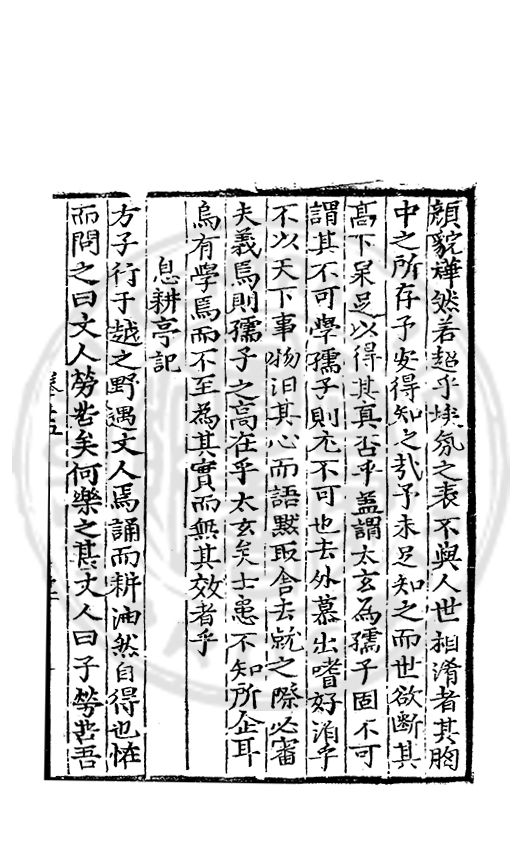 顔貌燁然若超乎埃氛之表不與人世相淆者其胸
中之所存予安得知之哉予未足知之而世欲斷其
高下果足以得其真否乎蓋謂太玄為孺子固不可
謂其不可學孺子則尤不可也去外慕出嗜好消乎
不以天下事物汨其心而語默取舍去就之際必審
夫義焉則孺子之高在乎太玄矣士患不知所企耳
烏有學焉而不至為其實而無其效者乎
息耕亭記
方子行于越之野遇丈人焉誦而耕油然自得也恠
而問之曰丈人勞苦矣何樂之甚丈人曰子勞苦吾